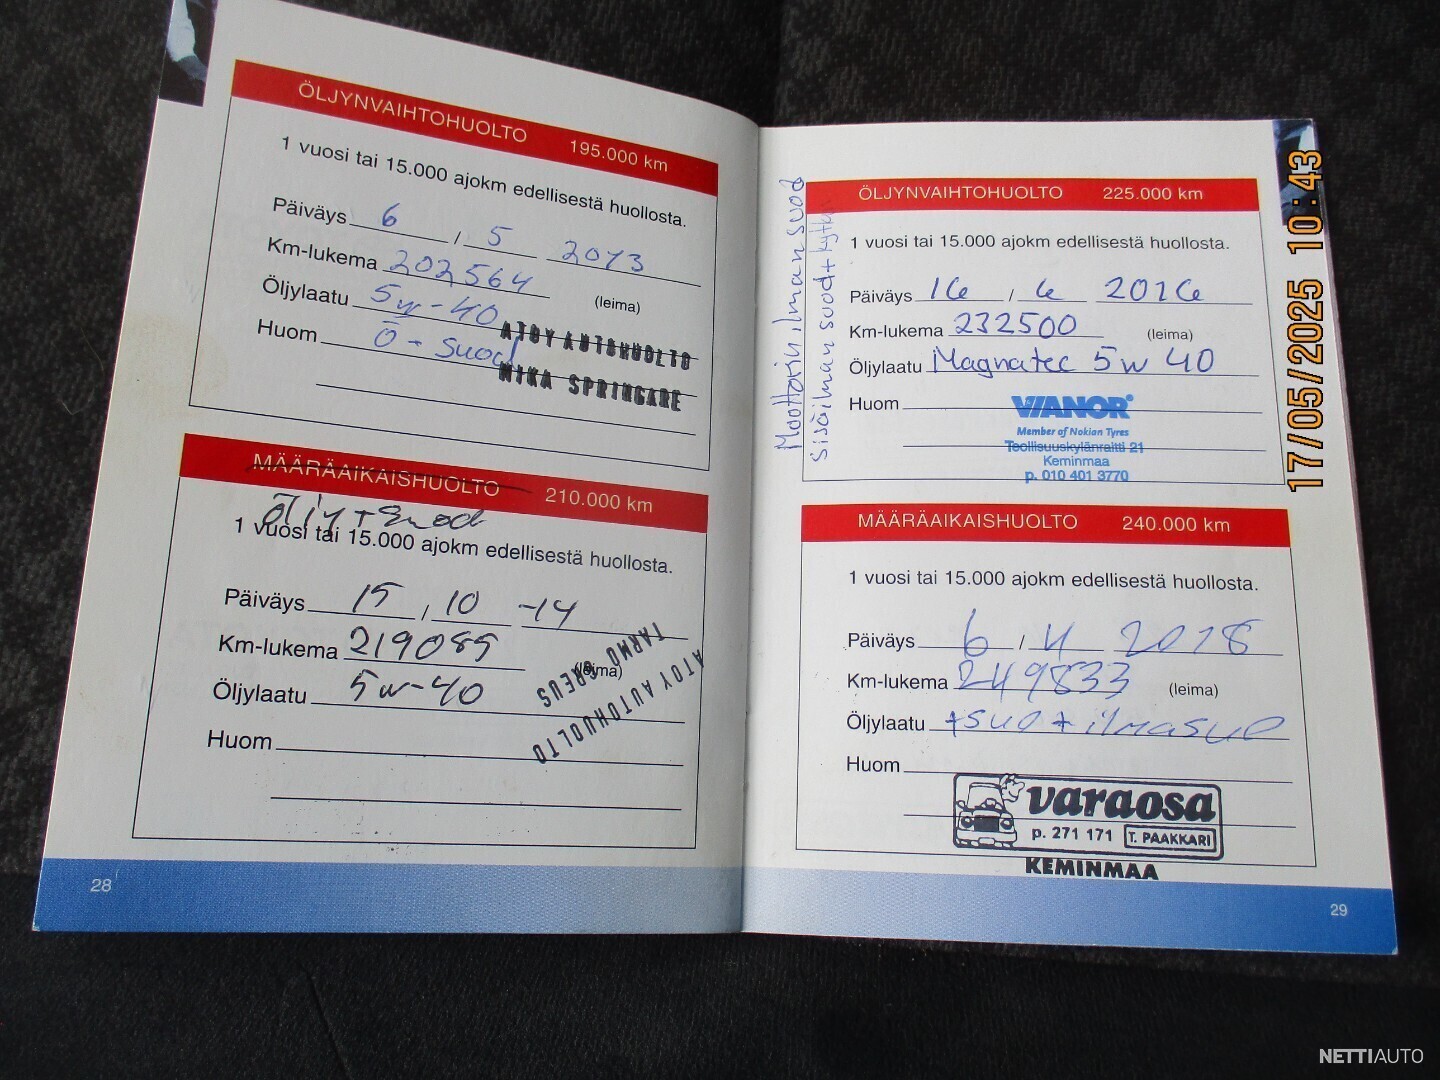 ÖLJYNVAIHTOHUOLTO 195.000 km
1 vuosi tai 15.000 ajokm edellisestä huollosta.
Päiväys 6 / 5 2013
Km-lukema 202564
Öljylaatu 5w-40 (leima)
Huom Ö-suod
ATOY AUTOHUOLTO
MIKA SPRINGARE
MÄÄRÄAIKAISHUOLTO 210.000 km
Öljy + suod
1 vuosi tai 15.000 ajokm edellisestä huollosta.
Päiväys 15 / 10 -14
Km-lukema 219085
(leima)
Öljylaatu 5w-40
Huom
TARMO GREUS
ATOY AUTOHUOLTO
28
Moottorin ilman suod
sisäilman suod+
ÖLJYNVAIHTOHUOLTO 225.000 km
1 vuosi tai 15.000 ajokm edellisestä huollosta.
Päiväys 16 / 6 2016
Km-lukema 232500 (leima)
Öljylaatu Magnatec 5w 40
Huom
VIANOR
Member of Nokian Tyres
Teollisuuskylänraitti 21
Keminmaa
p. 010 401 3770
MÄÄRÄAIKAISHUOLTO 240.000 km
1 vuosi tai 15.000 ajokm edellisestä huollosta.
Päiväys 6 / 4 2018
Km-lukema 249833 (leima)
Öljylaatu +suo + ilmasuo
Huom
varaosa
p. 271 171 T. PAAKKARI
KEMINMAA
29
17/05/2025 10:43
NETTIAUTO